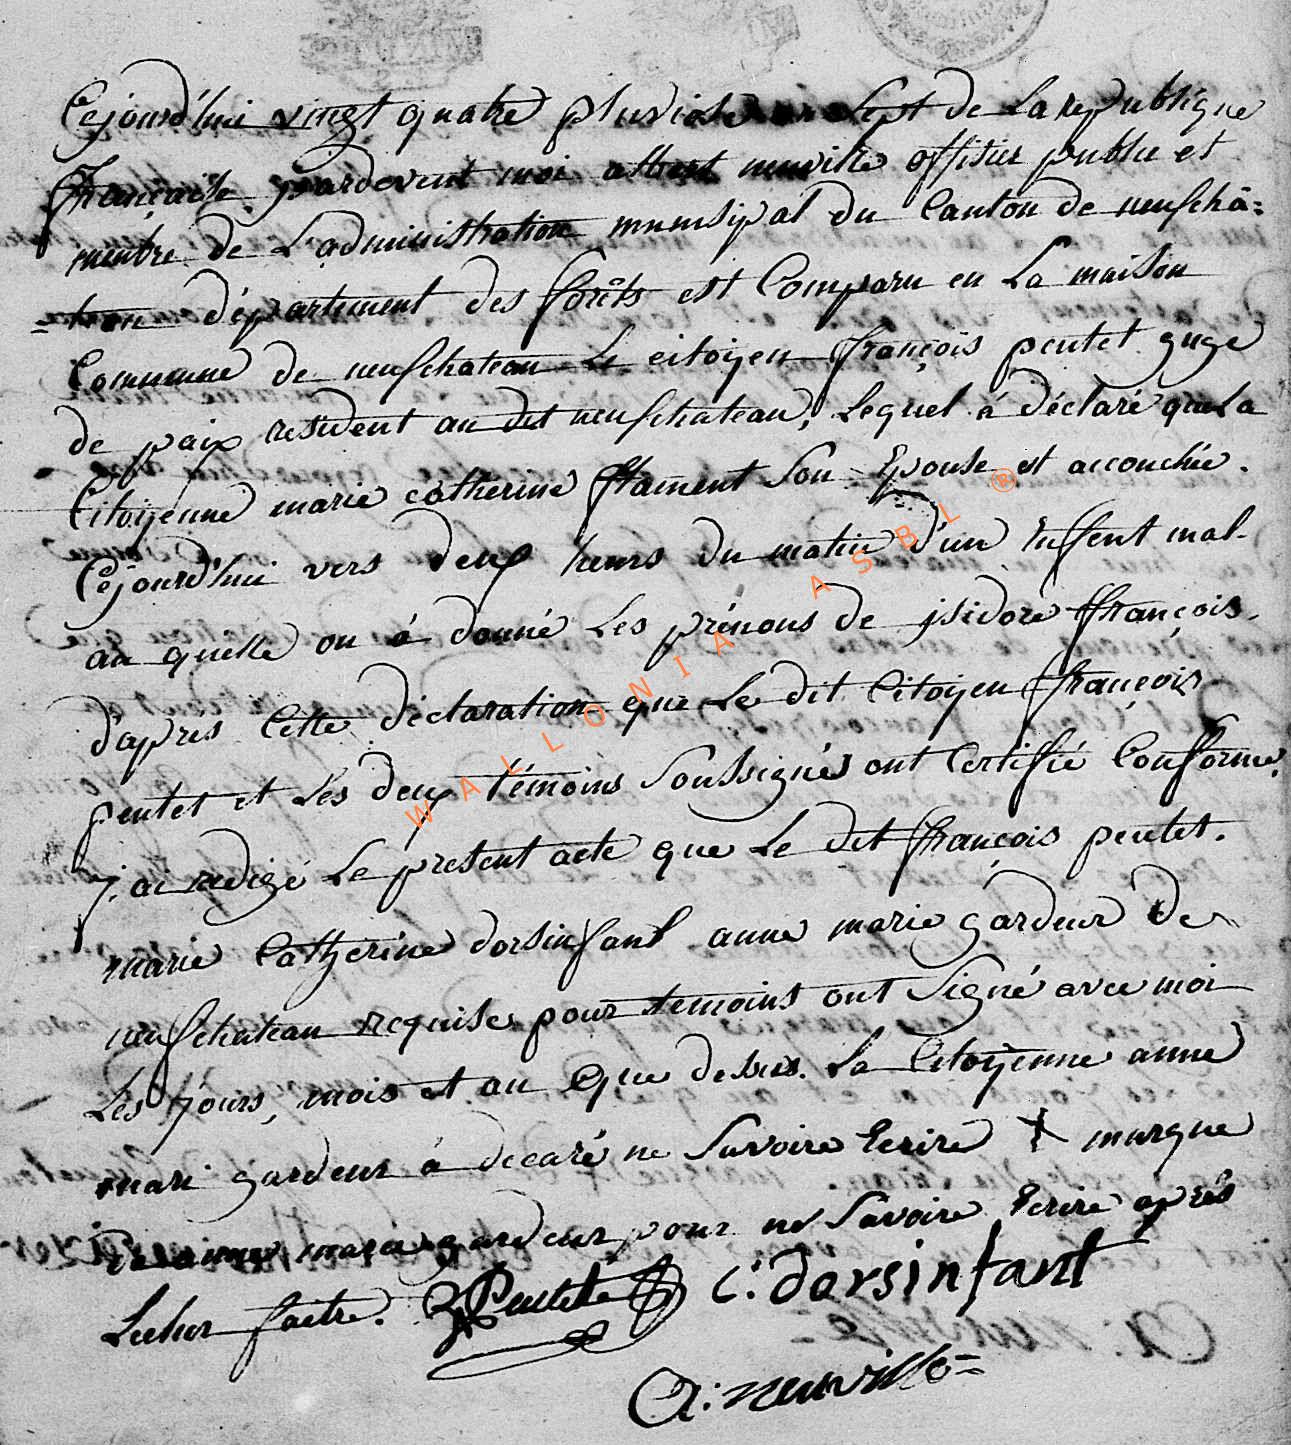 Cejourd'hui vingt quatre pluviose an Sept de La republique
française, pardevent moi albert neuville offisier public et
membre de L'administration munisipal du Canton de neufchâ=
=teau département des forêts est Comparu en La maison
Commune de neufchateau Le citoyen françois pentet guge
de paix resident au dit neufchateau, Lequel á déclaré que La
Citoyenne marie catherine flament Son Epouse est accouchée.
Cejourd'hui vers deux heurs du matin d'un Enfent mal-
au quelle on á donné Les prénoms de jsidore françois.
d'aprés Cette déclaration que Le dit Citoyen françois
pentet et Les deux témoins Soussignés ont Certifié Conforme,
j'ai redigé Le present acte que Le dit françois pentet.
marie Catherine dorsinfant anne marie gardeur de
neufchateau requise pour temoins ont Signé avec moi
Les jours, mois et an Que dessus. La Citoyenne anne
mari gardeur á decaré ne Savoire Ecrire + marque
De anne marie gardeur pour ne Savoire Ecrire aprés
Lecture faitte. Pentet C: dorsinfant
A: neuville=
WALLONIA ASBL ®